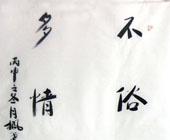 不俗
多情
丙申之冬月楓